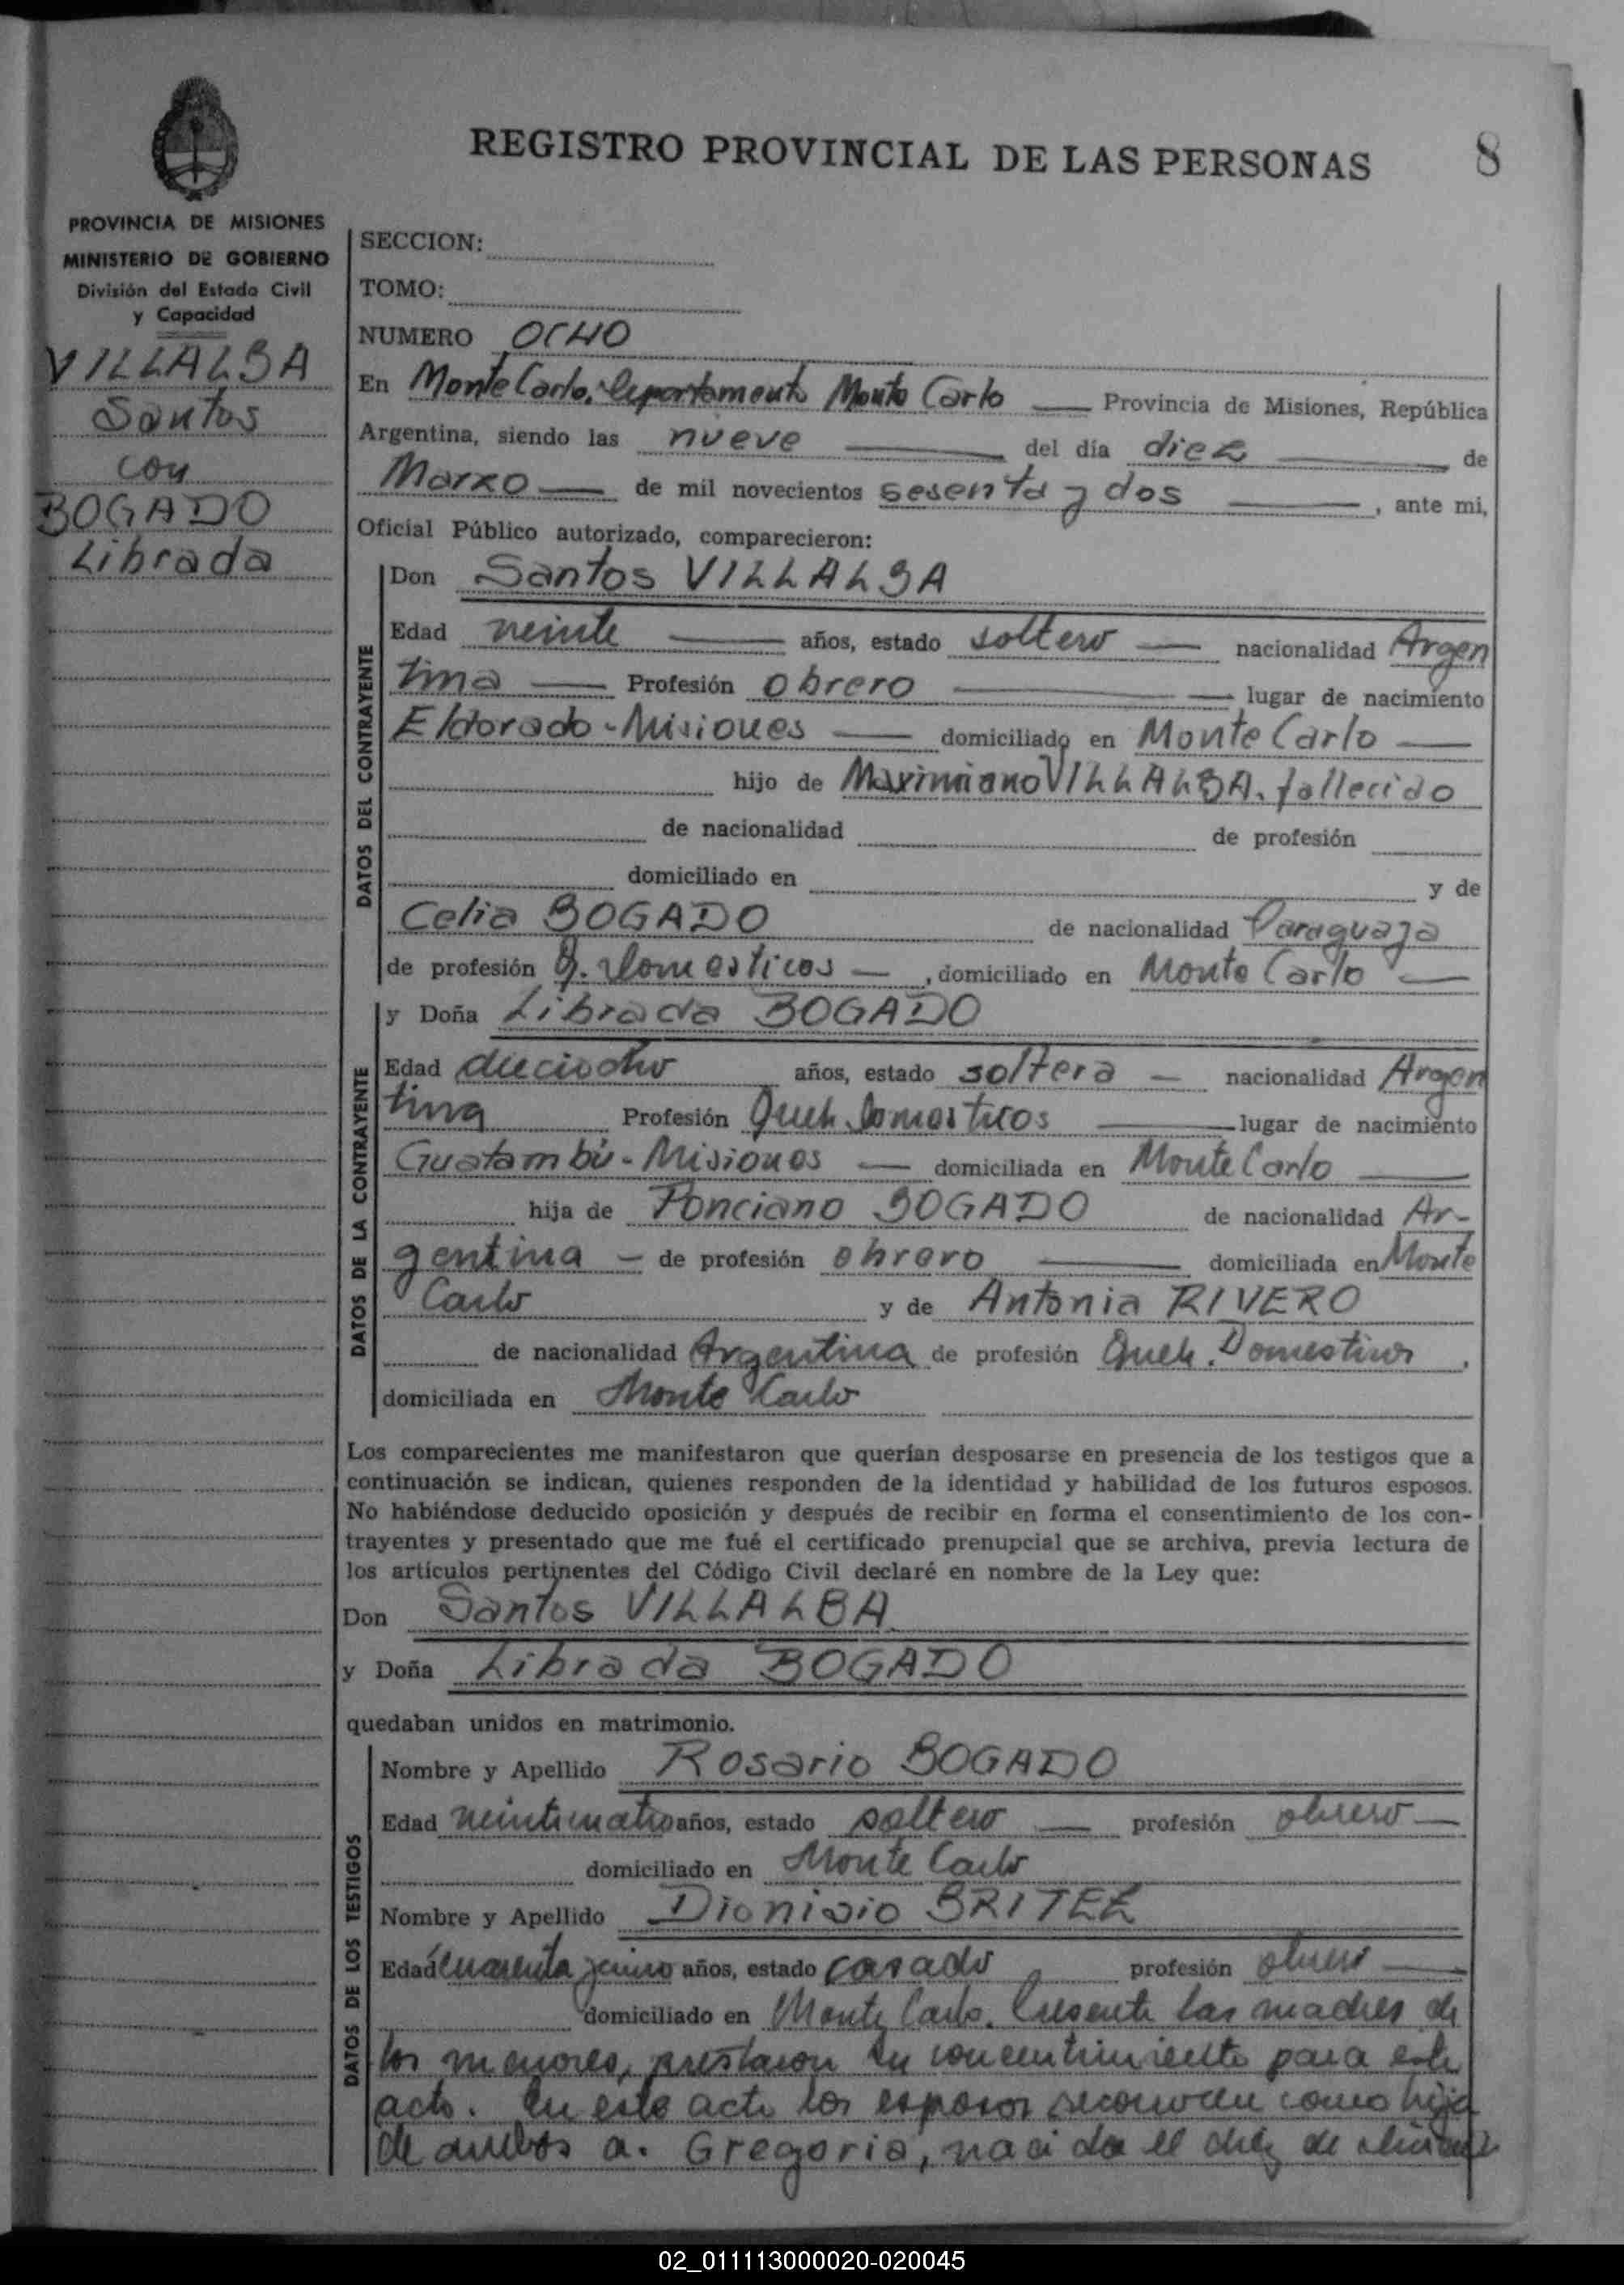 REGISTRO PROVINCIAL DE LAS PERSONAS
8
PROVINCIA DE MISIONES
MINISTERIO DE GOBIERNO
División del Estado Civil
y Capacidad
VILLALBA
Santos
con
BOGADO
Librada
SECCION:
TOMO:
NUMERO OCHO
En Monte Carlo, departamento Monte Carlo Provincia de Misiones, República
Argentina, siendo las nueve del día diez de
Marzo de mil novecientos sesenta y dos, ante mi,
Oficial Público autorizado, comparecieron:
DATOS DEL CONTRAYENTE
Don Santos VILLALBA
Edad veinte años, estado soltero nacionalidad Argen
tina Profesión obrero lugar de nacimiento
Eldorado - Misiones domiciliado en Monte Carlo
hijo de Maximiano VILLALBA, fallecido
de nacionalidad de profesión
domiciliado en y de
Celia BOGADO de nacionalidad Paraguaya
de profesión Q. Domesticos, domiciliado en Monte Carlo
DATOS DE LA CONTRAYENTE
y Doña Librada BOGADO
Edad dieciocho años, estado soltera nacionalidad Argen
tina Profesión Queh. Domesticos lugar de nacimiento
Guatambú - Misiones domiciliada en Monte Carlo
hija de Ponciano BOGADO de nacionalidad Ar-
gentina de profesión obrero domiciliada en Monte
Carlo y de Antonia RIVERO
de nacionalidad Argentina de profesión Queh. Domesticos,
domiciliada en Monte Carlo
Los comparecientes me manifestaron que querían desposarse en presencia de los testigos que a
continuación se indican, quienes responden de la identidad y habilidad de los futuros esposos.
No habiéndose deducido oposición y después de recibir en forma el consentimiento de los con-
trayentes y presentado que me fué el certificado prenupcial que se archiva, previa lectura de
los artículos pertinentes del Código Civil declaré en nombre de la Ley que:
Don Santos VILLALBA
y Doña Librada BOGADO
quedaban unidos en matrimonio.
DATOS DE LOS TESTIGOS
Nombre y Apellido Rosario BOGADO
Edad veinticuatro años, estado soltero profesión obrero
domiciliado en Monte Carlo
Nombre y Apellido Dionisio BRITEZ
Edad cuarenta y cinco años, estado casado profesión obrero
domiciliado en Monte Carlo. Presente las madres de
los menores, prestaron su concentimiento para este
acto. En este acto los esposos reconocen como hija
de ambos a. Gregoria, nacida el diez de
02_011113000020-020045